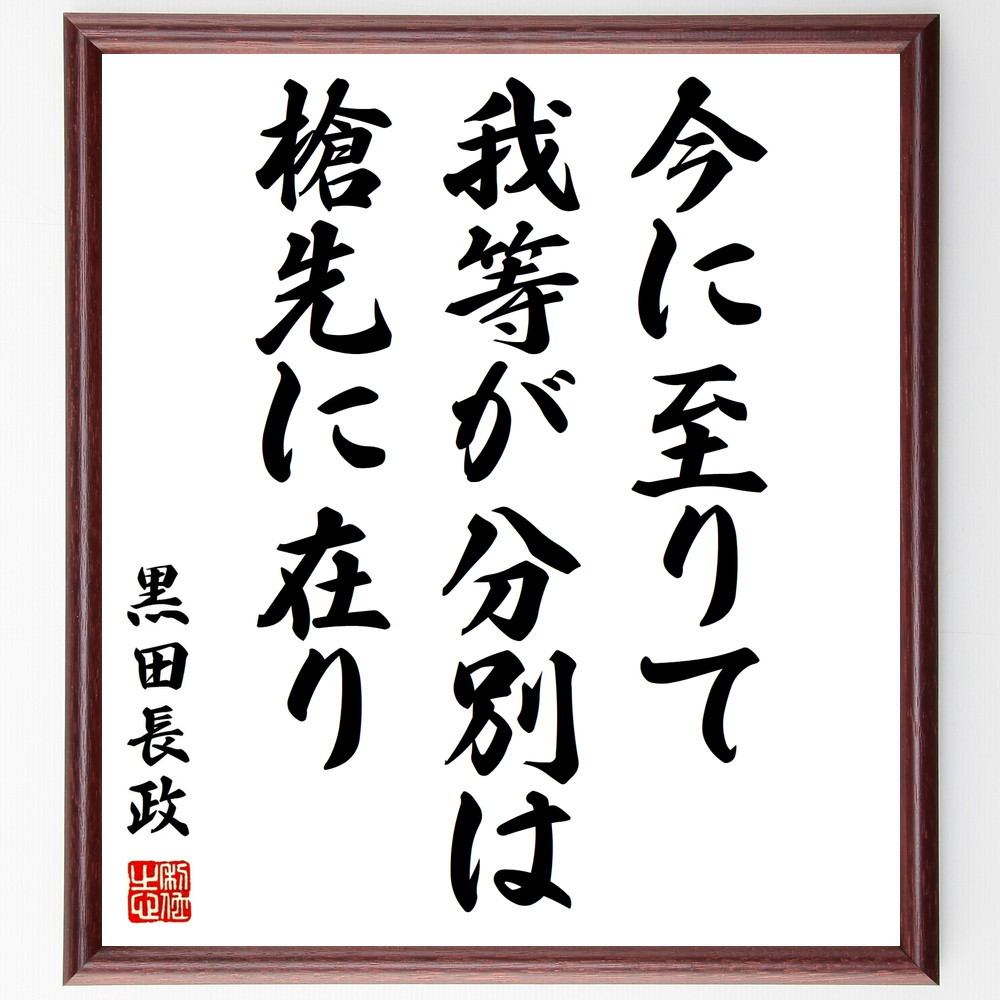 今に至りて
我等が分別は
槍先に在り
黒田長政